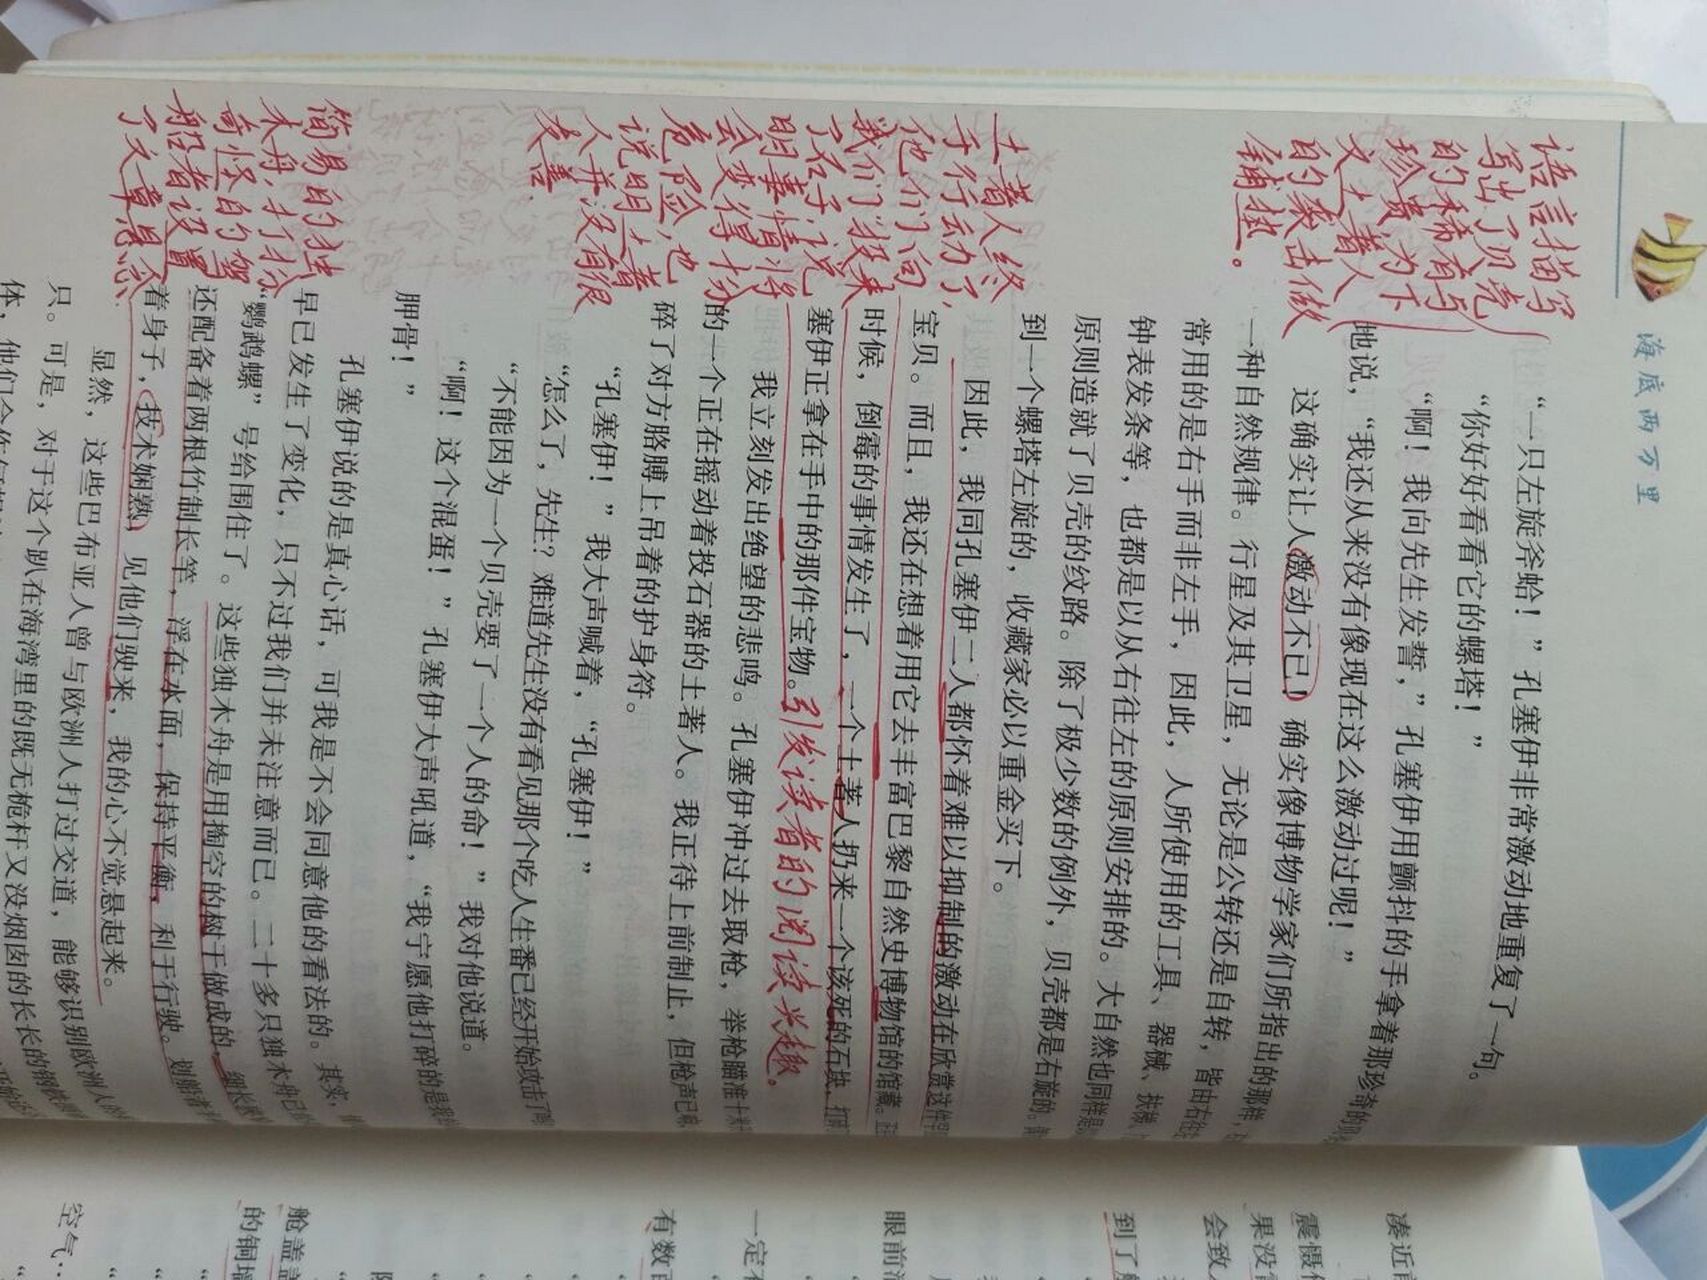 海底两万里
语言描写
写出了贝壳
的稀有与
珍贵,为下
文土著人
的袭击做
铺垫。
“一只左旋斧蛤！”孔塞伊非常激动地重复了一句。
“你好好看看它的螺塔！”
“啊！我向先生发誓，”孔塞伊用颤抖的手拿着那珍奇的
地说，“我还从来没有像现在这么激动过呢！”
这确实让人激动不已！确实像博物学家们所指出的那样，
一种自然规律。行星及其卫星，无论是公转还是自转，皆由右往
常用的是右手而非左手，因此，人所使用的工具、器械、
钟表发条等，也都是以从右往左的原则安排的。大自然也同样
原则造就了贝壳的纹路。除了极少数的例外，贝壳都是右旋的。
到一个螺塔左旋的，收藏家必以重金买下。
土著人终
于行动了,
他们向
我们投来
了石子,说
明事情将
会变得十分
危险,也
说明土著
人并没有很
友善。
因此，我同孔塞伊二人都怀着难以抑制的激动在欣赏这件
宝贝。而且，我还在想着用它去丰富巴黎自然史博物馆的馆藏。
时候，倒霉的事情发生了，一个土著人扔来一个该死的石块，
塞伊正拿在手中的那件宝物。引发读者的阅读兴趣。
我立刻发出绝望的悲鸣。孔塞伊冲过去取枪，举枪瞄准十米
的一个正在摇动着投石器的土著人。我正待上前制止，但枪声已
碎了对方胳膊上吊着的护身符。
“孔塞伊！”我大声喊着，“孔塞伊！”
“怎么了，先生？难道先生没有看见那个吃人生番已经开始攻击了
“不能因为一个贝壳要了一个人的命！”我对他说道。
“啊！这个混蛋！”孔塞伊大声吼道，“我宁愿他打碎的是我的
胛骨！”
简易的独
木舟,十分
奇怪的
船者设置
了文章悬念
孔塞伊说的是真心话，可我是不会同意他的看法的。其实，
早已发生了变化，只不过我们并未注意而已。二十多只独木舟已
“鹦鹉螺”号给围住了。这些独木舟是用掏空的树干做成的，细长
还配备着两根竹制长竿，浮在水面，保持平衡，利于行驶。划船者
着身子，技术娴熟，见他们驶来，我的心不觉悬起来。
显然，这些巴布亚人曾与欧洲人打过交道，能够识别欧洲人的
只。可是，对于这个趴在海湾里的既无桅杆又没烟囱的长长的钢铁
凑近
震慑
果没
会致
到了
眼前
一定
有数
舱盖
的铜墙
空气…